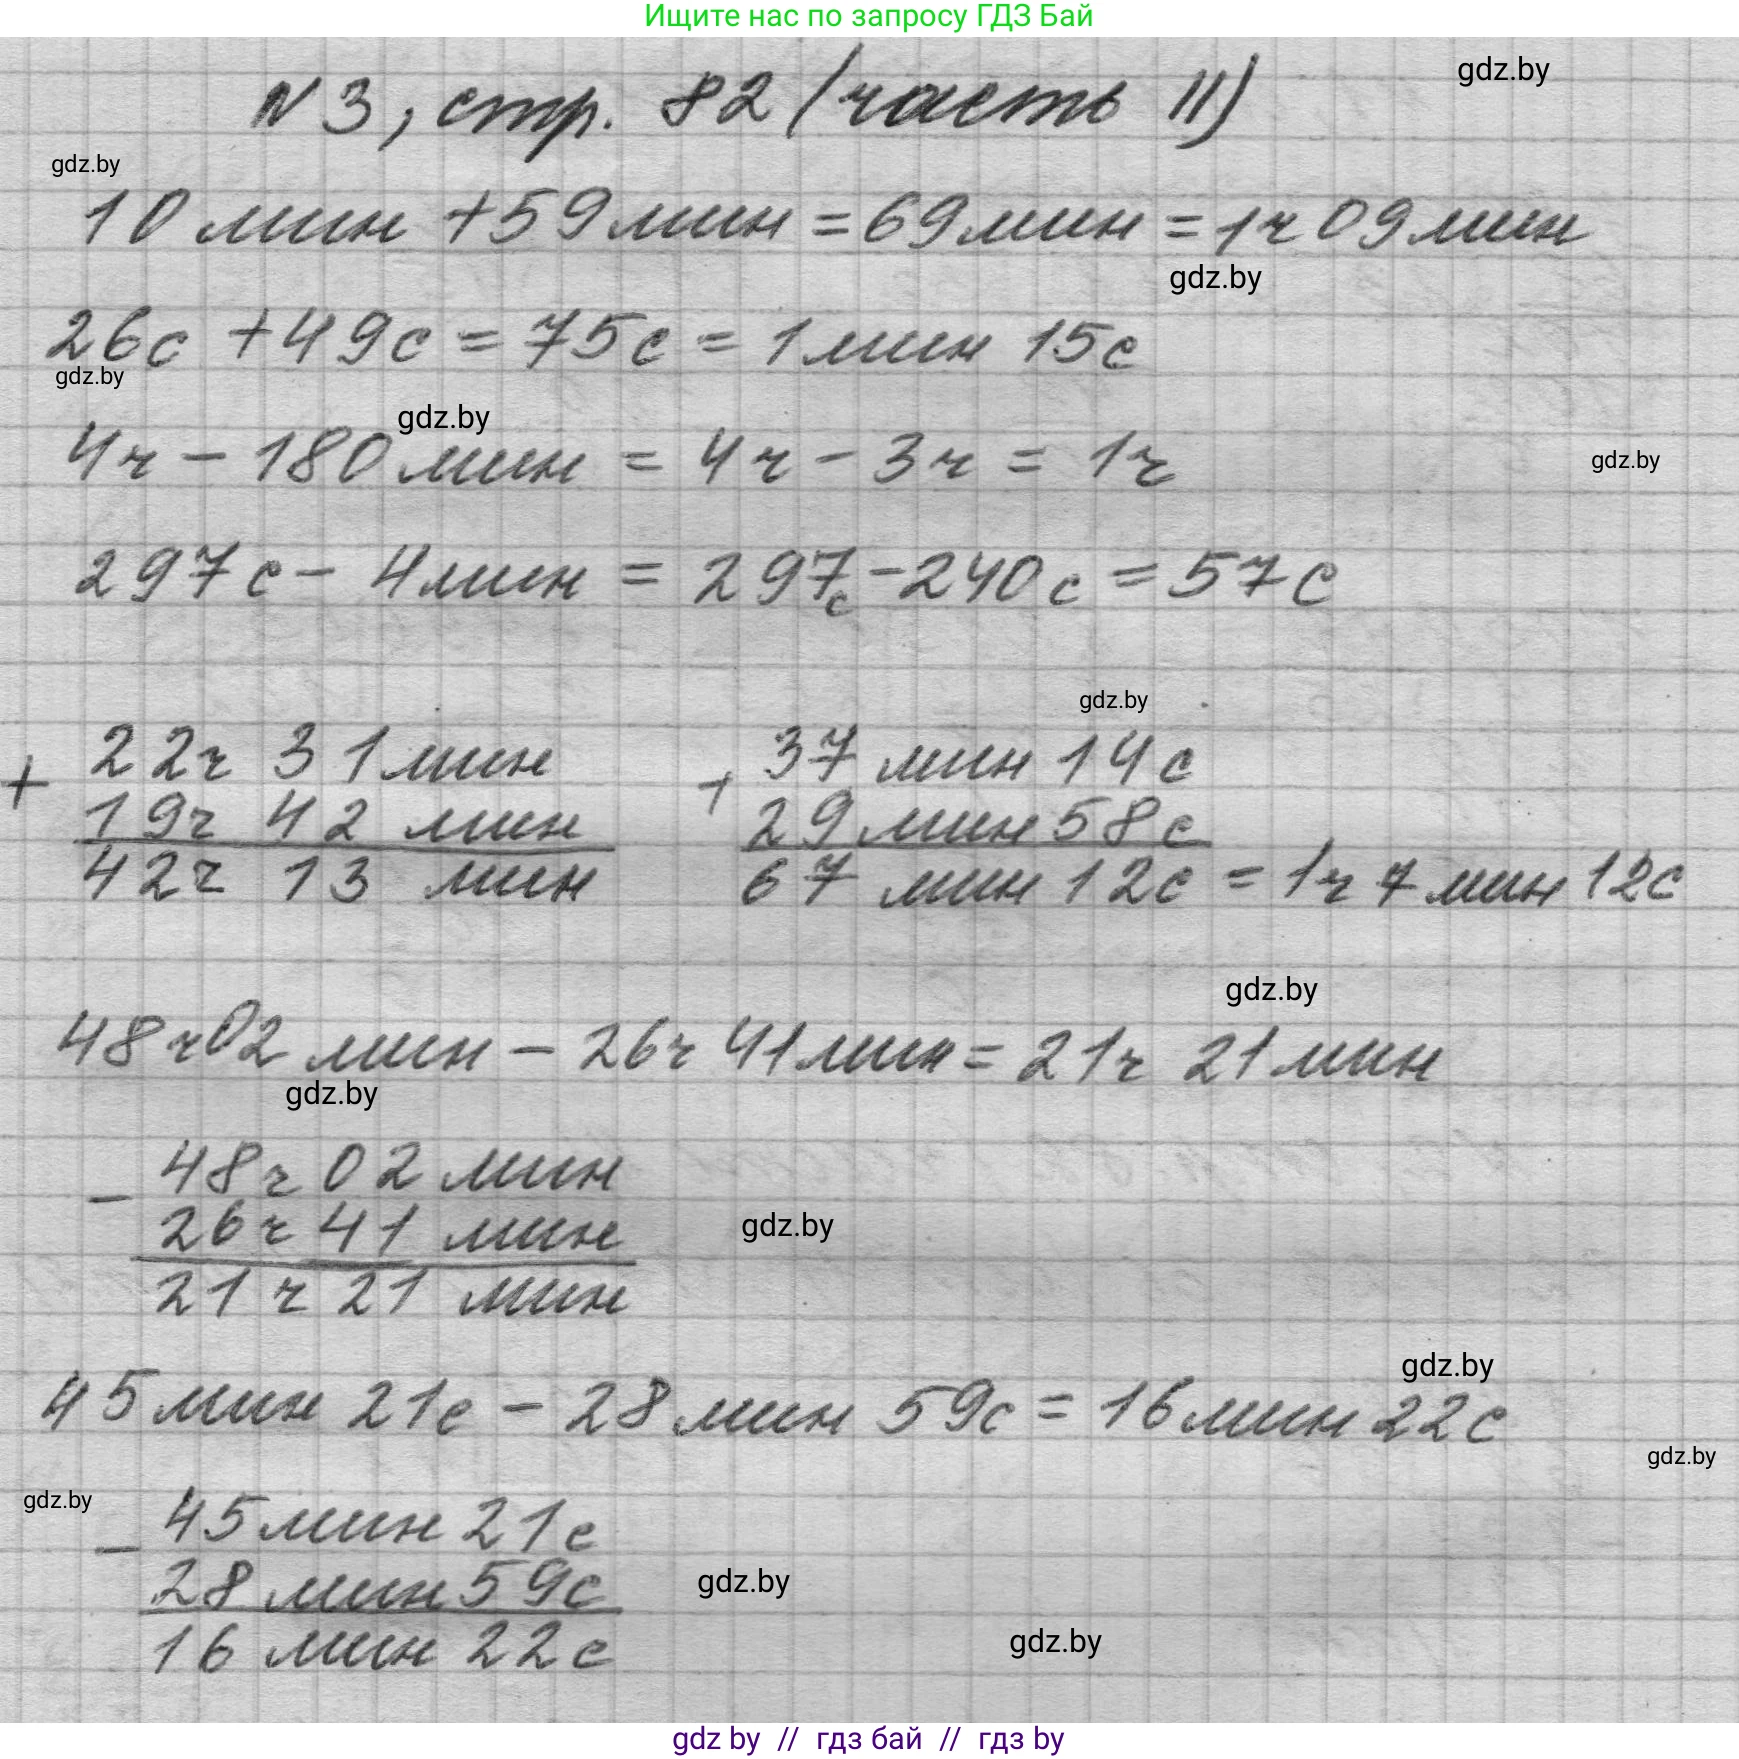 Ищите нас по запросу ГДЗ Бай
gdz.by
N3, стр. 82 (часть II)
gdz.by
10 мин + 59 мин = 69 мин = 1ч 09 мин
gdz.by
26с + 49с = 75с = 1 мин 15с
gdz.by
gdz.by
4ч - 180 мин = 4ч - 3ч = 1ч
gdz.by
297с - 4мин = 297с - 240с = 57с
gdz.by
+ 22ч 31мин + 37 мин 14с
19ч 42 мин 29 мин 58с
42ч 13 мин 67 мин 12с = 1ч 7 мин 12с
gdz.by
48ч02 мин - 26ч 41мин = 21ч 21мин
gdz.by
- 48ч 02 мин
26ч 41 мин
gdz.by
21ч 21 мин
gdz.by
45 мин 21с - 28 мин 59с = 16мин 22с
gdz.by
gdz.by
- 45мин 21с
28 мин 59с
gdz.by
16 мин 22с
gdz.by
gdz by // гдз бай // гдз by